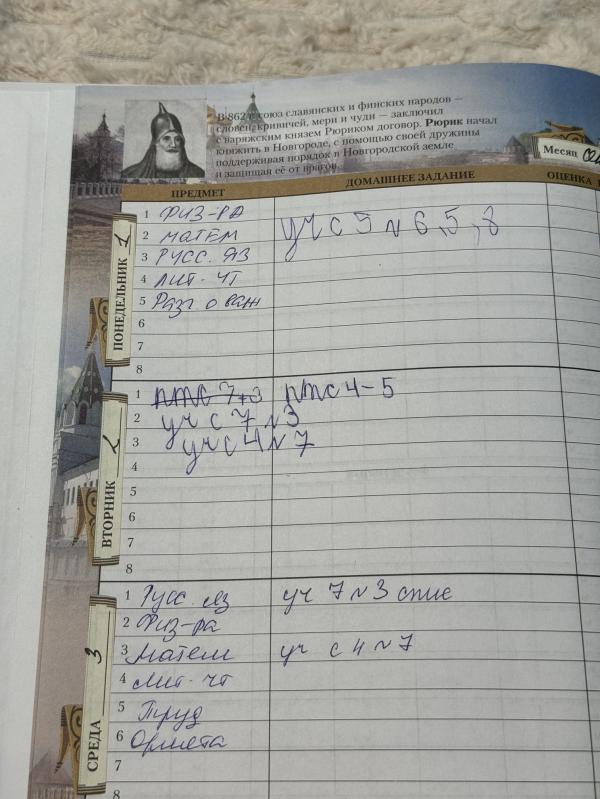 В 862 г. союз славянских и финских народов —
словен, кривичей, мери и чуди — заключил
с варяжским князем Рюриком договор. Рюрик начал
княжить в Новгороде, с помощью своей дружины
поддерживая порядок в Новгородской земле
и защищая её от врагов.
Месяц
ПРЕДМЕТ ДОМАШНЕЕ ЗАДАНИЕ ОЦЕНКА
ПОНЕДЕЛЬНИК 1
1 физ-ра
2 матем уч с 5 № 6,5,8
3 Русс. яз
4 лит-чт
5 Разг о важ
6
7
8
ВТОРНИК 2
1 птс 4-5
2 уч с 7 № 3
3 уч с 4 № 7
4
5
6
7
8
СРЕДА 3
1 Русс. яз уч 7 № 3 спис
2 Физ-ра
3 Матем уч с 4 № 7
4 Лит-чт
5 Труд
6
7
8